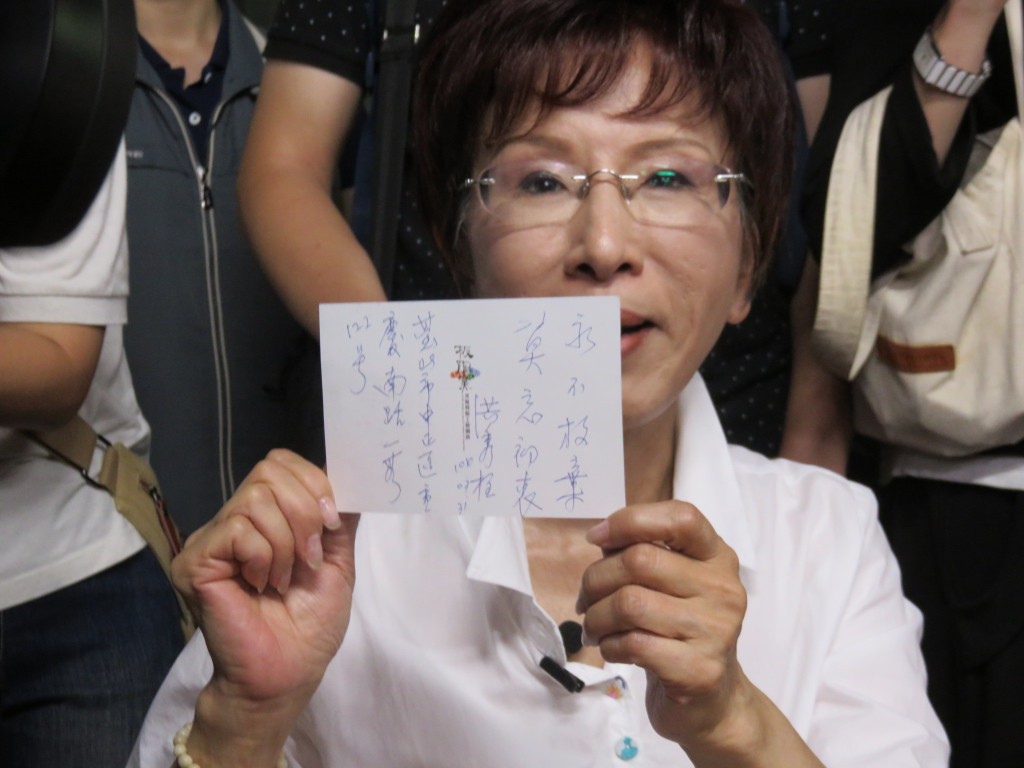 永不放棄
莫忘初衷
洪秀柱
臺北市中正區重
慶南路一段
122號